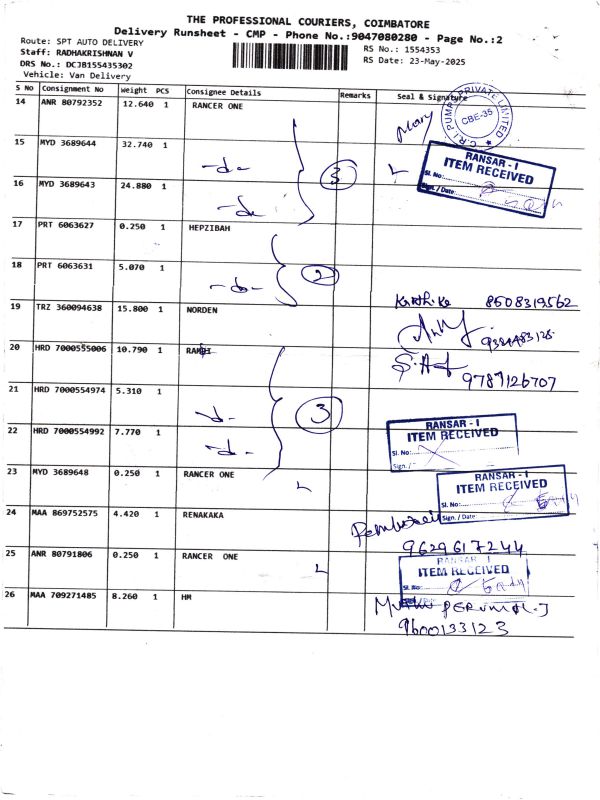 THE PROFESSIONAL COURIERS, COIMBATORE
Delivery Runsheet - CMP - Phone No.:9047080280 - Page No.:2
Route: SPT AUTO DELIVERY
RS No.: 1554353
Staff: RADHAKRISHNAN V
RS Date: 23-May-2025
DRS No.: DCJB155435302
Vehicle: Van Delivery
S No Consignment No Weight PCS Consignee Details Remarks Seal & Signature
14 ANR 80792352 12.640 1 RANCER ONE
C.R.I PUMPS PRIVATE LIMITED
CBE-35
15 MYD 3689644 32.740 1 -do-
3
RANSAR - I
ITEM RECEIVED
Sl. No:
Sign./Date:
16 MYD 3689643 24.880 1 -do-
17 PRT 6063627 0.250 1 HEPZIBAH
18 PRT 6063631 5.070 1 -do-
2
19 TRZ 360094638 15.800 1 NORDEN
Karthika 8508319562
20 HRD 7000555006 10.790 1
9787126707
21 HRD 7000554974 5.310 1 -do-
3
22 HRD 7000554992 7.770 1 -do-
RANSAR - I
ITEM RECEIVED
Sl. No:
Sign./
23 MYD 3689648 0.250 1 RANCER ONE
RANSAR - I
ITEM RECEIVED
Sl. No:
Sign./Date:
24 MAA 869752575 4.420 1 RENAKAKA
9629617244
25 ANR 80791806 0.250 1 RANCER ONE
RANSAR - I
ITEM RECEIVED
26 MAA 709271485 8.260 1 HM
PERUMAL.J
9600133123